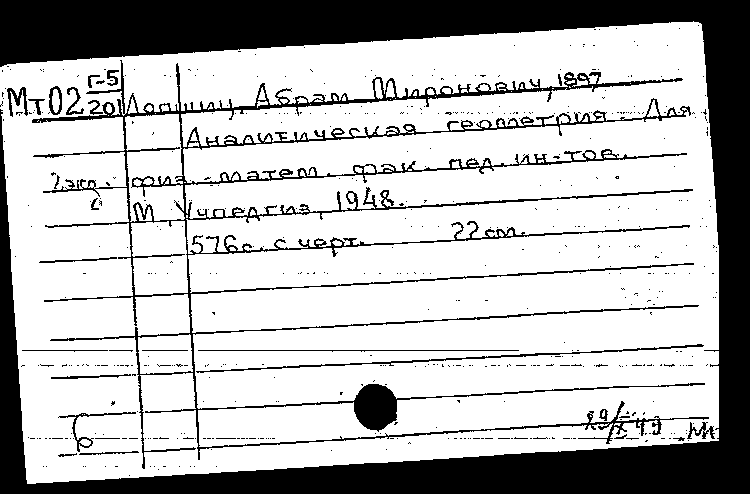 Мт02 Г-5/201 Лопшиц, Абрам Миронович, 1897
Аналитическая геометрия. Для
2 экз. физ.-матем. фак. пед. ин-тов.
М., Учпедгиз, 1948.
576с. с черт. 22 см.
б 29/X 49